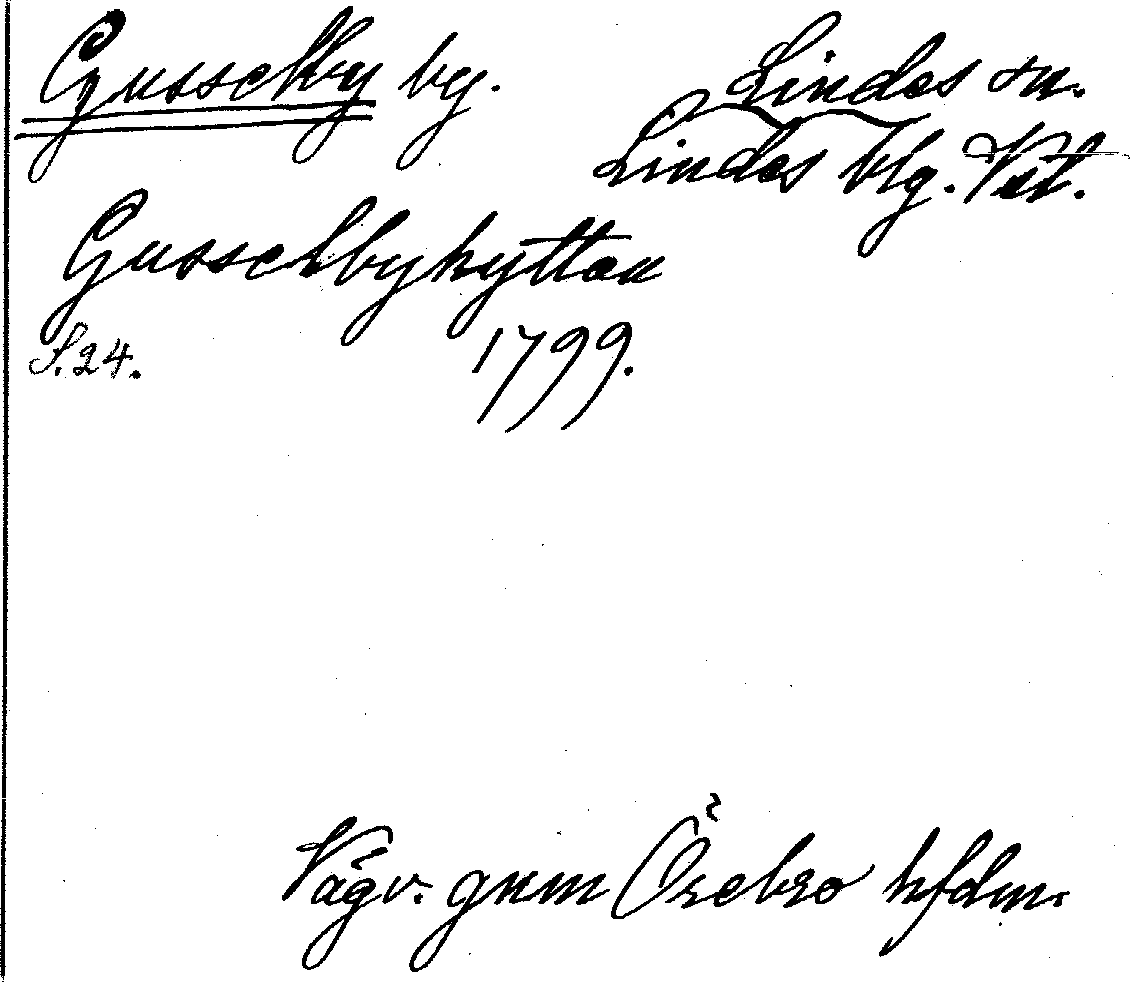 Gusselby by. Lindes sn.
Lindes blg. Vstl.
Gusselbyhyttan
S. 24. 1799.
Vägv. gnm Örebro hfdm.